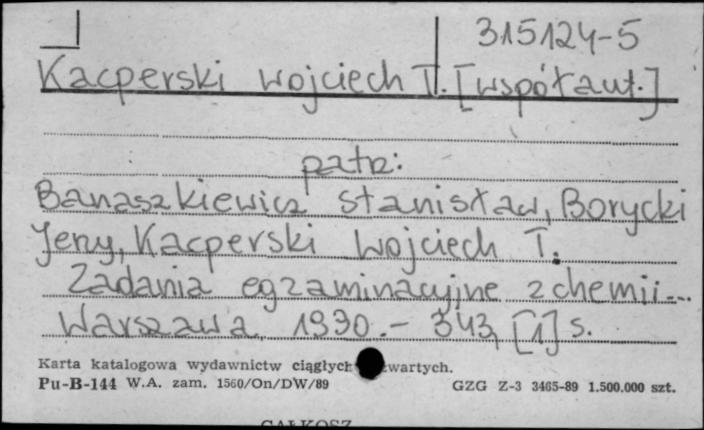 315124-5
Kacperski Wojciech T. [współaut.]
patrz:
Banaszkiewicz Stanisław, Borycki
Jerzy, Kacperski Wojciech T.
Zadania egzaminacyjne z chemii...
Warszawa 1990.- 343, [1] s.
Karta katalogowa wydawnictw ciągłych wartych.
Pu-B-144 W.A. zam. 1560/On/DW/89 GZG Z-3 3465-89 1.500.000 szt.